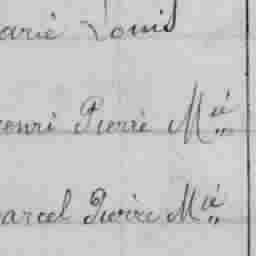 arie Louis
enri Pierre M^ie
arcel Pierre M^ie